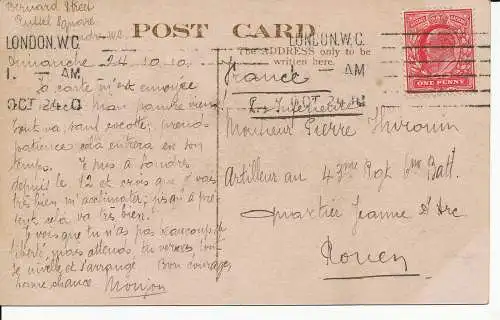 Bernard Street
Russel Square
POST CARD
LONDON. W.C.
1. - AM
OCT 24
The ADDRESS only to be
written here.
LONDON. W.C.
- AM
ONE PENNY
Dimanche 24.10.10
ta carte m'est envoyée
Mon pauvre vieux
tout va, sauf
patience cela entrera en son
temps. Je suis à Londres
depuis le 12 et crois que je vais
très bien m'acclimater; jusqu'à pré-
sent cela va très bien.
Je vois que tu n'as pas beaucoup de
liberté, mais attends, tu verras tout
se nivelle et s'arrange. Bon courage,
bonne chance
France
Monsieur Pierre
Artilleur au 4 Rgt Batt.
Quartier Jeanne d'Arc
Rouen